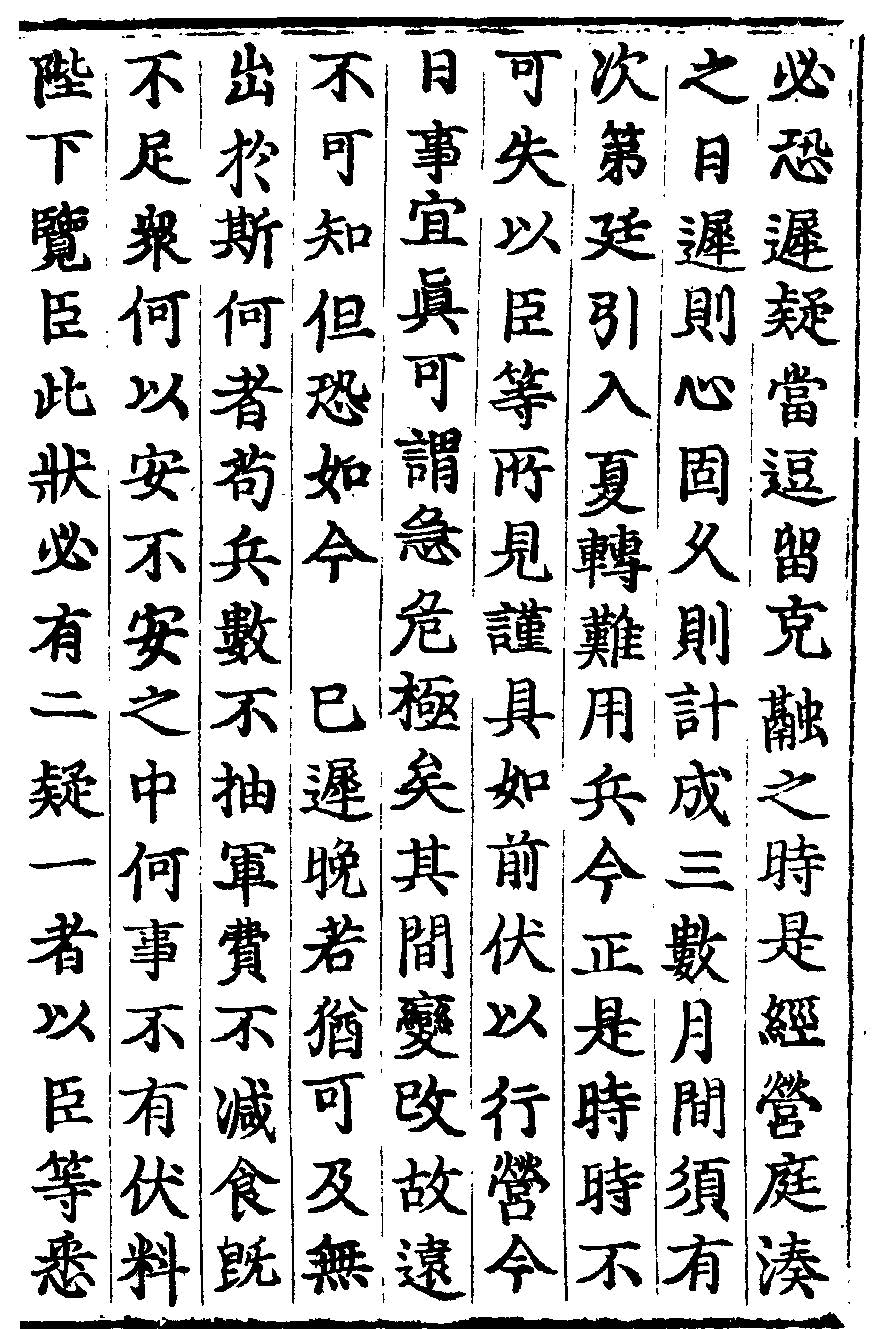 必恐遲疑當逗留克融之時是經營庭湊
之日遲則心固久則計成三數月間須有
次第廷引入夏轉難用兵今正是時時不
可失以臣等所見謹具如前伏以行營今
日事宜眞可謂急危極矣其間變改故遠
不可知但恐如今　巳遲晚若猶可及無
出於斯何者苟兵數不抽軍費不減食旣
不足衆何以安不安之中何事不有伏料
陛下覽臣此狀必有二疑一者以臣等悉